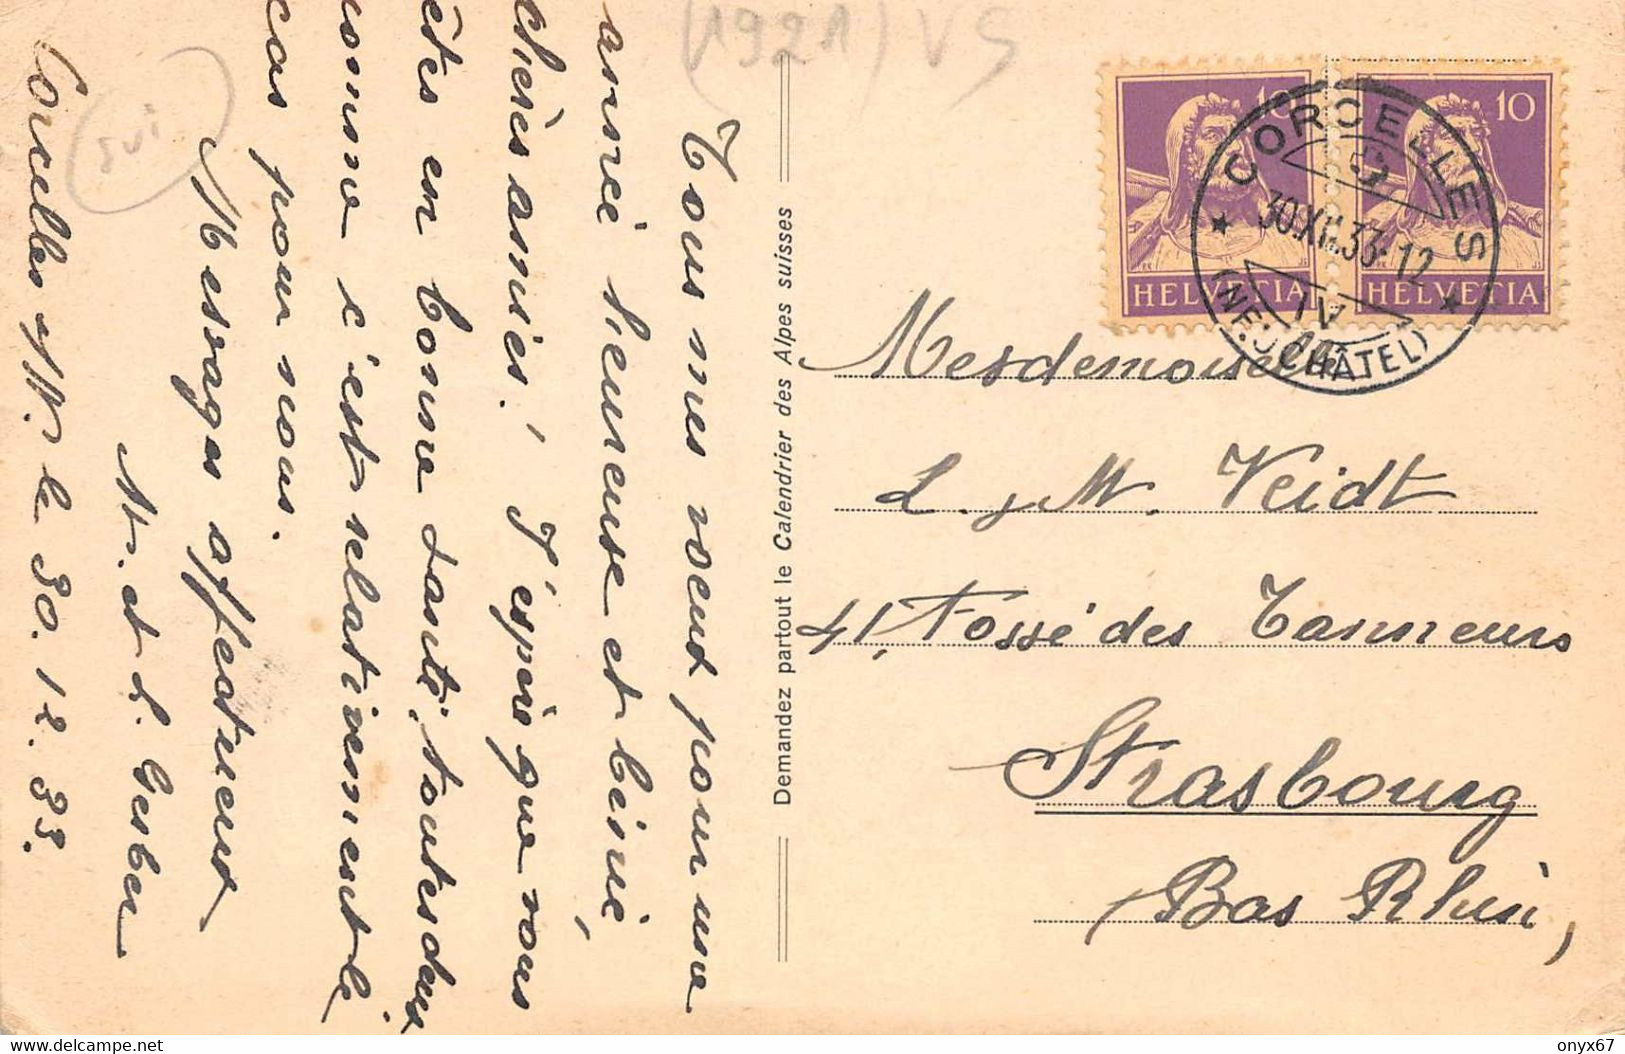 (1921) VS
sui
Tous mes voeux pour une
année heureuse et bénie,
chères amies! J'espère que vous
êtes en bonne santé, toutes deux
comme c'est relativement le
cas pour nous.
Messages affectueux
M. et L. Gerber
Corcelles s/N. le 30.12.33.
Demandez partout le Calendrier des Alpes suisses
10
HELVETIA
10
HELVETIA
CORCELLES
30.XII.33-12
IV
(NEUCHÂTEL)
Mesdemoiselles
L. & M. Veidt
41, Fossé des Tanneurs
Strasbourg
Bas Rhin,
delcampe.net
onyx67